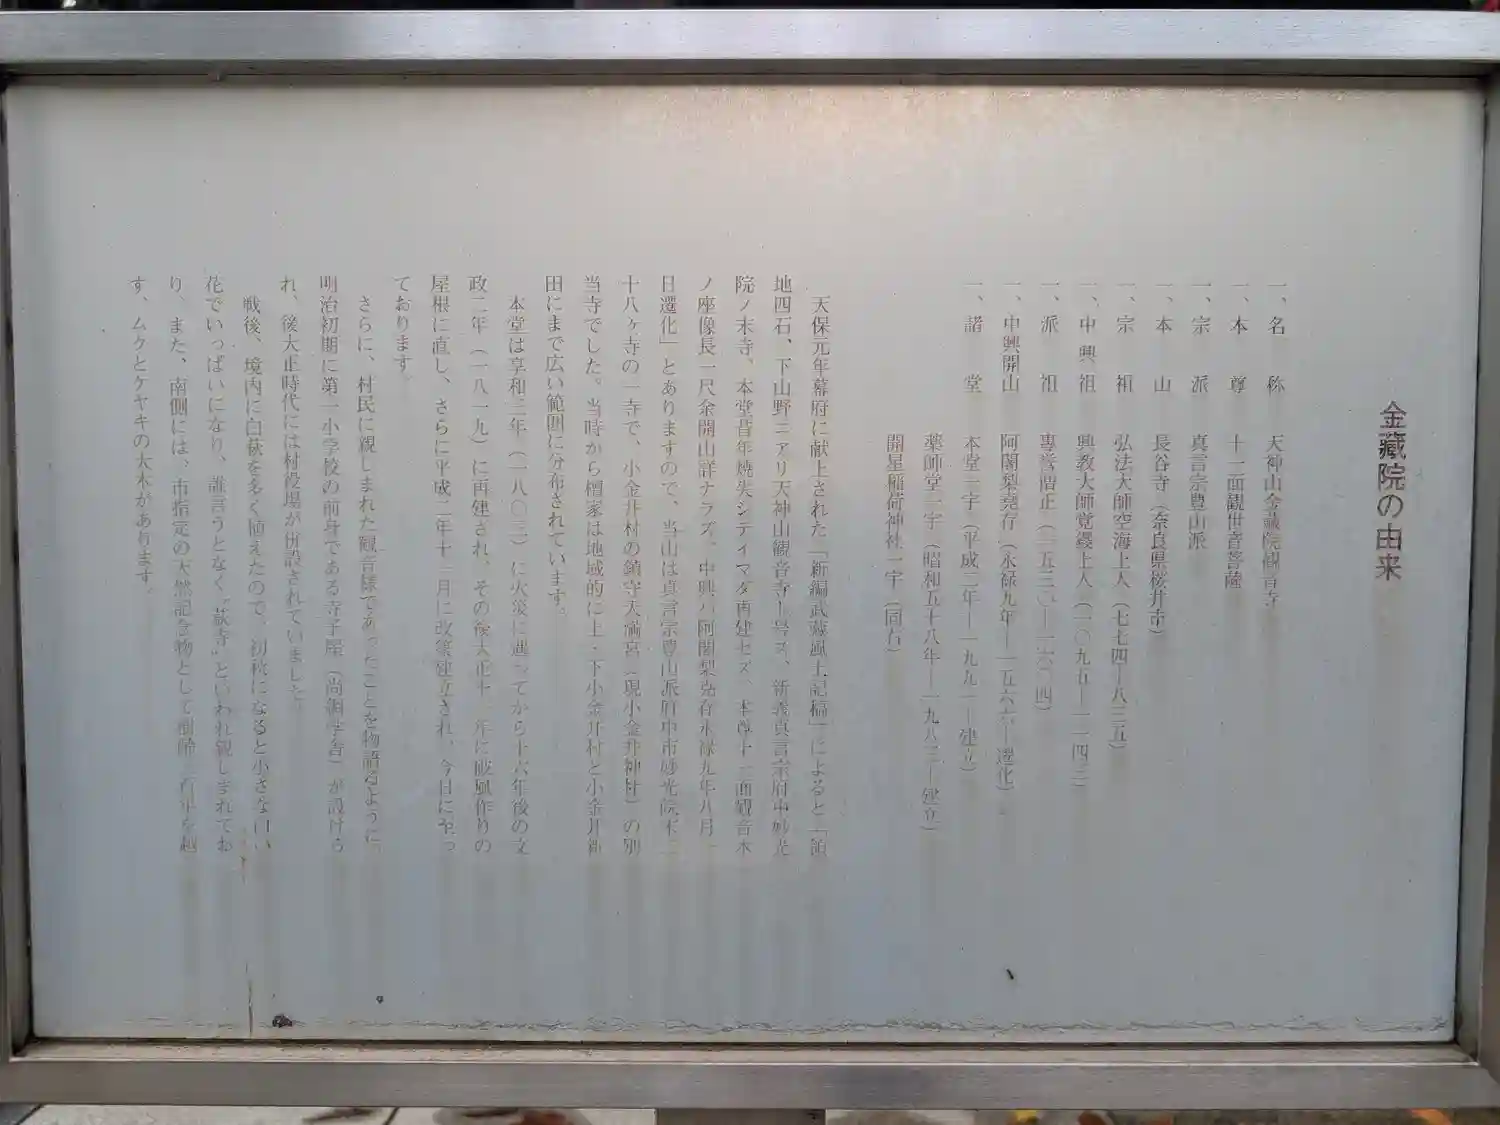 金藏院の由来
一、名称 天神山金藏院観音寺
一、本尊 十一面観世音菩薩
一、宗派 真言宗豊山派
一、本山 長谷寺（奈良県桜井市）
一、宗祖 弘法大師空海上人（七七四―八三五）
一、中興祖 興教大師覚鑁上人（一〇九五―一一四三）
一、派祖 専誉僧正（一五三〇―一六〇四）
一、中興開山 阿闍梨堯存（永禄九年―一五六六―遷化）
一、諸堂 本堂一宇（平成二年―一九九一―建立）
薬師堂一宇（昭和五十八年―一九八三―建立）
開星稲荷神社一宇（同右）
天保元年幕府に献上された「新編武蔵風土記稿」によると「領
地四石、下山野ニアリ天神山観音寺ト号ス、新義真言宗府中妙光
院ノ末寺、本堂昔年焼失シテイマダ再建セズ、本尊十一面観音木
ノ座像長一尺余開山詳ナラズ、中興ハ阿闍梨堯存永禄九年八月一
日遷化」とありますので、当山は真言宗豊山派府中市妙光院末三
十八ヶ寺の一寺で、小金井村の鎮守天満宮（現小金井神社）の別
当寺でした。当時から檀家は地域的に上・下小金井村と小金井新
田にまで広い範囲に分布されています。
本堂は享和三年（一八〇三）に火災に遭ってから十六年後の文
政二年（一八一九）に再建され、その後大正十一年に破風作りの
屋根に直し、さらに平成二年十二月に改築建立され、今日に至っ
ております。
さらに、村民に親しまれた観音様であったことを物語るように、
明治初期に第一小学校の前身である寺子屋（尚絅学舎）が設けら
れ、後大正時代には村役場が併設されていました。
戦後、境内に白萩を多く植えたので、初秋になると小さな白い
花でいっぱいになり、誰言うとなく〝萩寺〟といわれ親しまれてお
り、また、南側には、市指定の天然記念物として樹齢三百年を越
す、ムクとケヤキの大木があります。